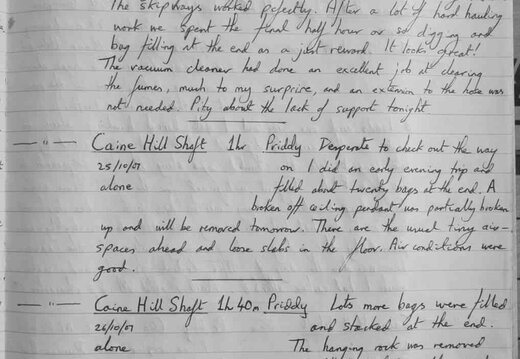 The skipways worked perfectly. After a lot of hard hauling
work we spent the final half hour or so digging and
bag filling at the end as a just reward. It looks great!
The vacuum cleaner had done an excellent job at clearing
the fumes, much to my surprise, and an extension to the hose was
not needed. Pity about the lack of support tonight
— " — Caine Hill Shaft 1hr Priddy Desperate to check out the way
25/10/01 on I did an early evening trip and
alone filled about twenty bags at the end. A
broken off ceiling pendant was partially broken
up and will be removed tomorrow. There are the usual tiny air-
spaces ahead and loose slabs in the floor. Air conditions were
good.
— " — Caine Hill Shaft 1h 40m Priddy Lots more bags were filled
26/10/01 and stacked at the end.
alone The hanging rock was removed